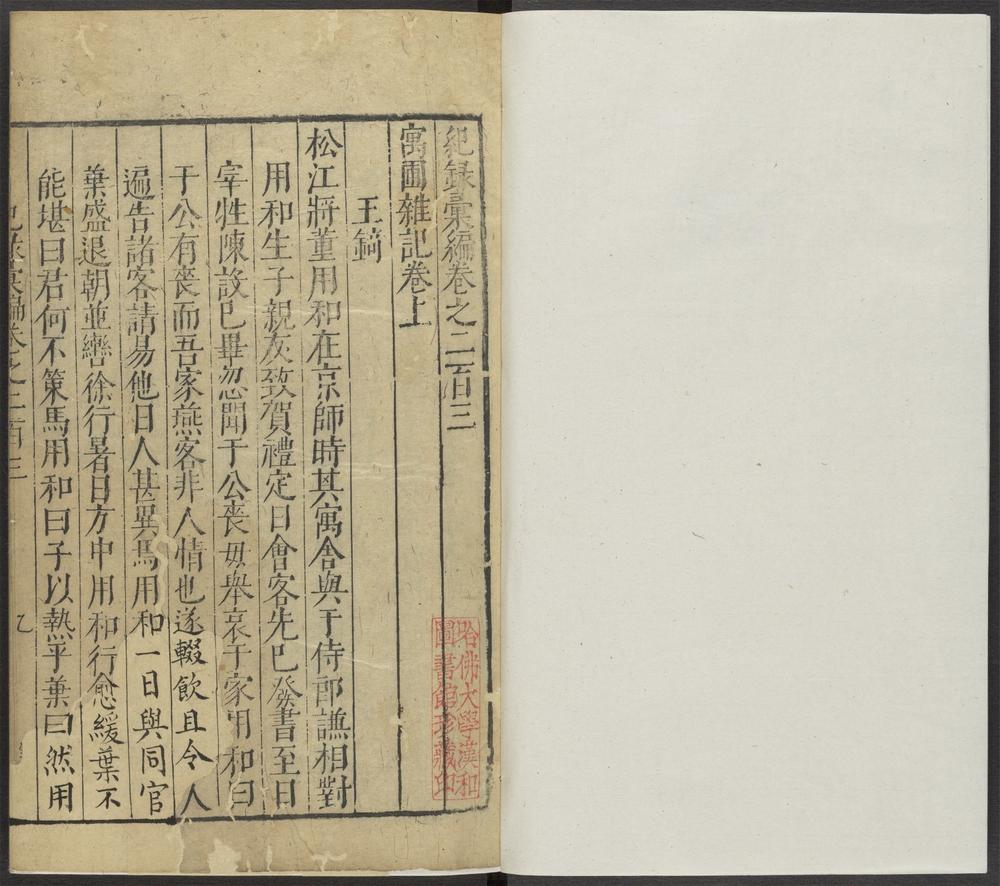 紀録彙編卷之二百三
寓圃雜記卷上
王錡
松江蔣董用和在京師時其寓舍與于侍郎謙相對
用和生子親友致賀禮定日會客先已發書至日
宰牲陳設已畢忽聞于公喪毋舉哀于家用和曰
于公有喪而吾家燕客非人情也遂輟飲且令人
遍告諸客請易他日人甚異焉用和一日與同官
葉盛退朝並轡徐行暑日方中用和行愈緩葉不
能堪曰君何不策馬用和曰子以熱乎葉曰然用
紀録彙編卷之二百三
乙
哈佛大學漢和
圖書館珍藏印